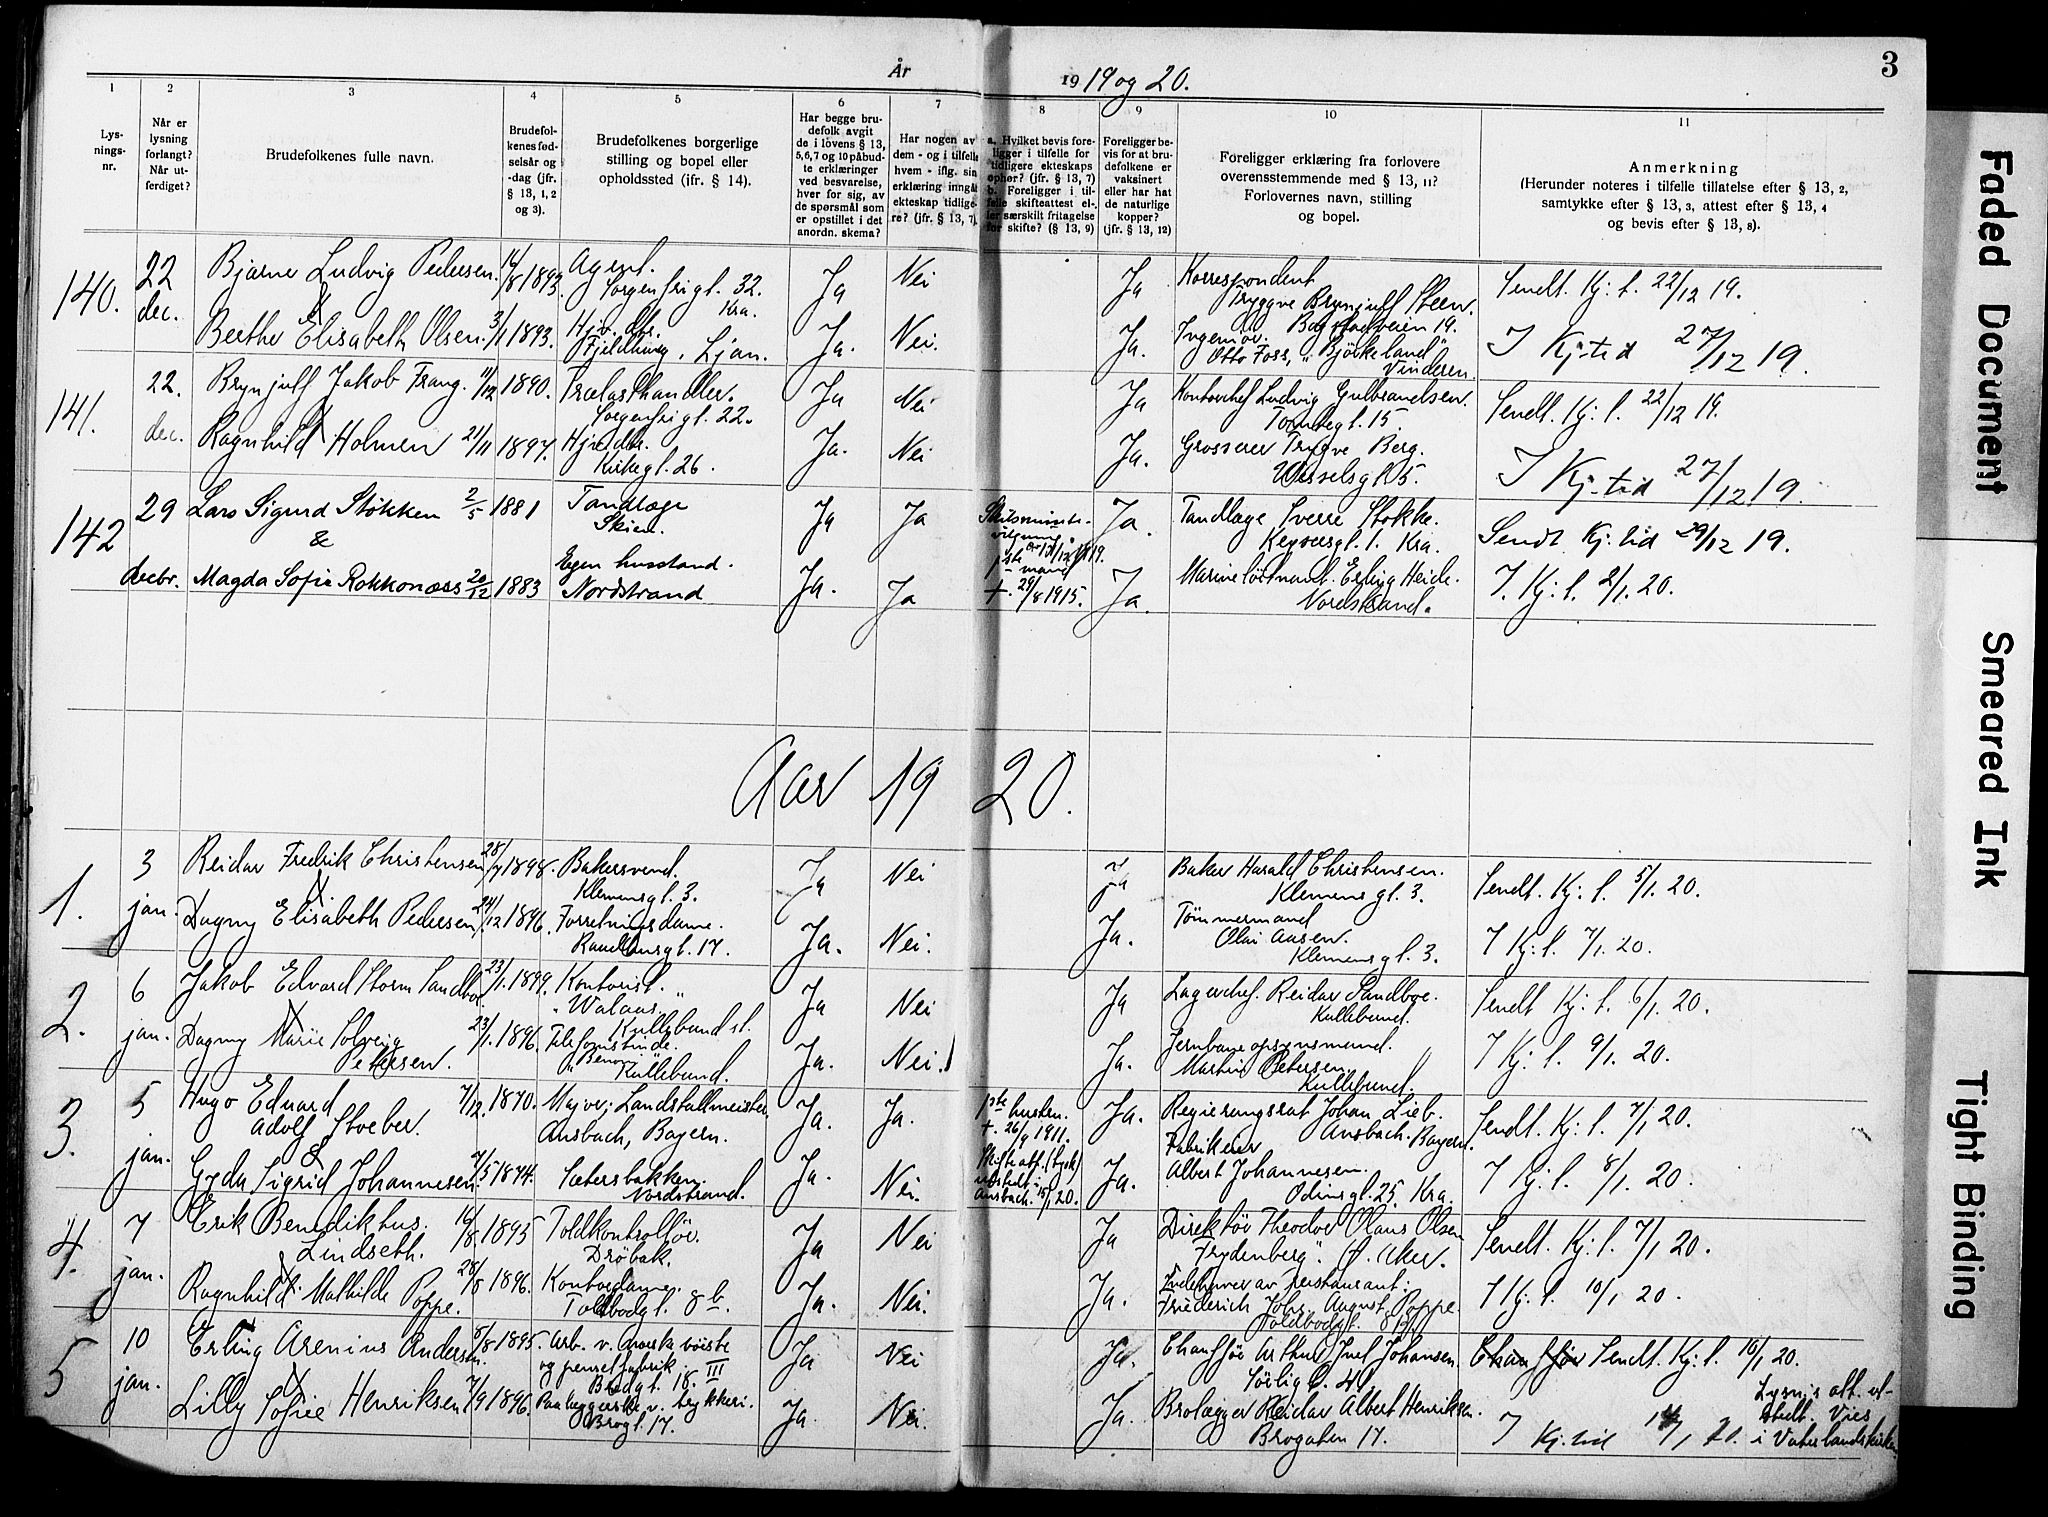 År 1919 og 20.
3
1 2 3 4 5 6 7 8 9 10 11
Lys-
nings-
nr.
Når er
lysning
forlangt?
Når ut-
ferdiget?
Brudefolkenes fulle navn.
Brudefol-
kenes fød-
selsår og
-dag (jfr.
§ 13, 1, 2
og 3).
Brudefolkenes borgerlige
stilling og bopel eller
opholdssted (jfr. § 14).
Har begge bru-
defolk avgit
de i lovens § 13,
5, 6, 7 og 10 påbud-
te erklæringer
ved besvarelse,
hver for sig, av
de spørsmål som
er opstillet i det
anordn. skema?
Har nogen av
dem - og i tilfelle
hvem - iflg. sin
erklæring inngåt
ekteskap tidlige-
re? (jfr. § 13, 7).
a. Hvilket bevis fore-
ligger i tilfelle for
tidligere ekteskaps
ophør? (jfr. § 13, 7)
b. Foreligger i til-
felle skifteattest el-
ler særskilt fritagelse
for skifte? (§ 13, 9)
Foreligger be-
vis for at bru-
defolkene er
vaksinert
eller har hat
de naturlige
kopper?
(jfr. § 13, 12)
Foreligger erklæring fra forlovere
overensstemmende med § 13, 11?
Forlovernes navn, stilling
og bopel.
Anmerkning
(Herunder noteres i tilfelle tillatelse efter § 13, 2,
samtykke efter § 13, 3, attest efter § 13, 4
og bevis efter § 13, 8).
140.
22
dec.
Bjarne Ludvig Pedersen.
&
Berthe Elisabeth Olsen.
14/8 1893.
3/1 1893.
Agent.
Sorgenfrigt. 32.
Kra.
Hjv. dtr.
Fjeldhaug, Ljan.
Ja
Ja.
Nei
Nei.
Ja
Ja.
Korrespondent
Tryggve Brynjulf Steen.
Bogstadveien 19.
Ingeniør
Otto Foss, "Bjørkeland"
Vinderen.
Sendt. Kj: t. 22/12 19.
I Kj-tid 27/12 19.
141.
22.
dec.
Brynjulf Jakob Frang.
&
Ragnhild Holmen
11/12 1890.
21/11 1897.
Trælasthandler.
Sorgenfrigt. 22.
Hjv. dtr.
Kirkegt. 26.
Ja
Ja.
Nei
Nei
Ja
Ja.
Kontorchef Ludvig Gulbrandsen.
Tomtegt. 15.
Grosserer Trygve Berg.
Wesselsgt. 5.
Sendt. Kj: t. 22/12 19.
I Kj-tid 27/12 19.
142
29
decbr.
Lars Sigurd Stokken
&
Magda Sofie Rokkonæss
2/5 1881
20/12 1883
Tandlæge
Skien.
Egen husstand.
Nordstrand
Ja
Ja.
Ja
Ja
Skilsmisse-
17/12 1919.
1ste mand
+. 29/8 1915.
Ja.
Ja.
Tandlæge Sverre Stokke.
Keysersgt. 1. Kra.
Marineløitnant. Erling Heide.
Nordstrand.
Sendt Kj: tid 29/12 19.
I. Kj: t. 2/1. 20.
Aar 1920.
1.
3
jan.
Reidar Fredrik Christensen
&
Dagny Elisabeth Pedersen
28/7 1898.
24/12 1896.
Bakersvend.
Klemensgt. 3.
Forretningsdame.
Ja
Ja.
Nei
Nei.
Ja
Ja.
Baker Harald Christensen.
Klemensgt. 3.
Tømmermand
Olai Aasen.
Klemensgt. 3.
Sendt. Kj: t. 5/1. 20.
I Kj: t. 7/1. 20.
2.
6
jan.
Jakob Edvard Storm Sandboe
&
Dagny Marie Solveig
Petersen.
23/1. 1899.
23/1. 1896.
Kontorist.
"Walaas"
Kullebund st.
Telefonistinde.
Kullebund.
Ja
Ja.
Nei
Nei.
Ja
Ja.
Lagerchef. Reidar Sandboe.
Kullebund.
Jernbaneopsynsmand.
Martin Petersen.
Kullebund.
Sendt Kj: t. 6/1. 20.
I Kj: t. 9/1. 20.
3.
5
jan.
Hugo Eduard
Adolf Stoeber.
&
Gyda Sigrid Johannesen
7/12. 1870.
7/5 1874.
Major; Landstallmeister
Ansbach, Bayern.
Sætersbakken.
Nordstrand.
Ja.
Ja.
Ja.
Nei.
1ste hustru.
+. 26/9 1911.
Skifteatt. (tysk)
utstedt i
Ansbach. 15/1 20.
Ja.
Ja.
Regierungsrat Johan Lieb.
Ansbach. Bayern.
Fabrikeier
Albert Johannesen.
Odinsgt. 25. Kra.
Sendt. Kj: t. 7/1 20.
I Kj: t. 8/1. 20.
4.
7
jan.
Erik Benedikthus.
Lindseth.
&
Ragnhild Mathilde Poppe.
16/8 1895
28/8 1896.
Toldkontrollør.
Drøbak.
Kontordame.
Toldbodgt. 8 b.
Ja
Ja.
Nei
Nei.
Ja
Ja.
Direktør Theodor Olaus Olsen
"Frydenberg". Ø. Aker.
Indehaver av restaurant.
Friederich Johs. August Poppe.
Toldbodgt. 8 b.
Sendt. Kj: t. 7/1 20.
I Kj: t. 10/1 20.
5
10
jan.
Erling Arenius Andersen.
&
Lilly Sofie Henriksen
8/8 1895.
7/9 1896.
Arb. v. norsk børste
og penselfabrik
Bredgt. 18. III
Paalæggerske v. trykkeri.
Brogt. 17.
Ja
Ja.
Nei
Nei.
Ja.
Ja.
Chauffør Arthur Juel Johansen.
Sørligt. 4.
Brolægger Reidar Albert Henriksen.
Brogaten 17.
Chauffør Sendt. Kj: t. 10/1 20.
I Kj: tid 14/1 20.
Lysnis att. ut-
stedt. Vies
i Vaterlandskirken
Faded Document
Smeared Ink
Tight Binding